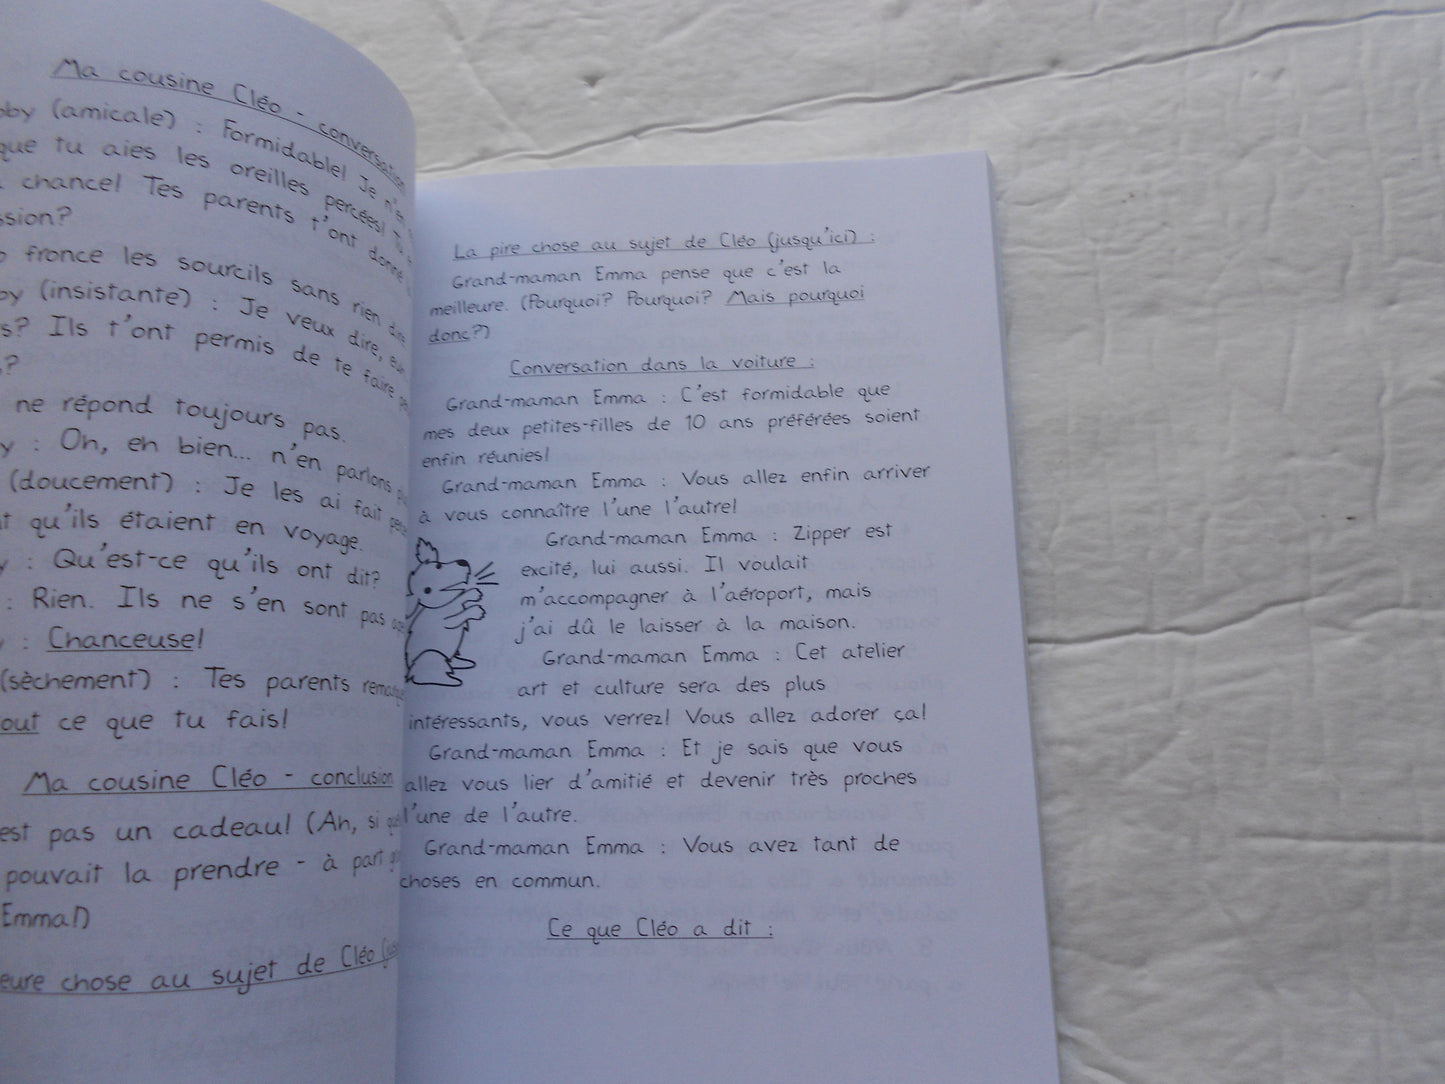 Ma cousine Cléo - conversation
(amicale) : Formidable! Je n'en
que tu aies les oreilles percées! Tu
chance! Tes parents t'ont donné
fronce les sourcils sans rien dire
(insistante) : Je veux dire, euh
Ils t'ont permis de te faire
ne répond toujours pas.
: Oh, eh bien... n'en parlons
(doucement) : Je les ai fait
qu'ils étaient en voyage.
: Qu'est-ce qu'ils ont dit?
: Rien. Ils ne s'en sont pas
: Chanceuse!
(sèchement) : Tes parents
ce que tu fais!
Ma cousine Cléo - conclusion
est pas un cadeau! (Ah, si
pouvait la prendre - à part
Emma!)
chose au sujet de Cléo
La pire chose au sujet de Cléo (jusqu'ici) :
Grand-maman Emma pense que c'est la
meilleure. (Pourquoi? Pourquoi? Mais pourquoi
donc?)
Conversation dans la voiture :
Grand-maman Emma : C'est formidable que
mes deux petites-filles de 10 ans préférées soient
enfin réunies!
Grand-maman Emma : Vous allez enfin arriver
à vous connaître l'une l'autre!
Grand-maman Emma : Zipper est
excité, lui aussi. Il voulait
m'accompagner à l'aéroport, mais
j'ai dû le laisser à la maison.
Grand-maman Emma : Cet atelier
art et culture sera des plus
intéressants, vous verrez! Vous allez adorer ça!
Grand-maman Emma : Et je sais que vous
allez vous lier d'amitié et devenir très proches
l'une de l'autre.
Grand-maman Emma : Vous avez tant de
choses en commun.
Ce que Cléo a dit :